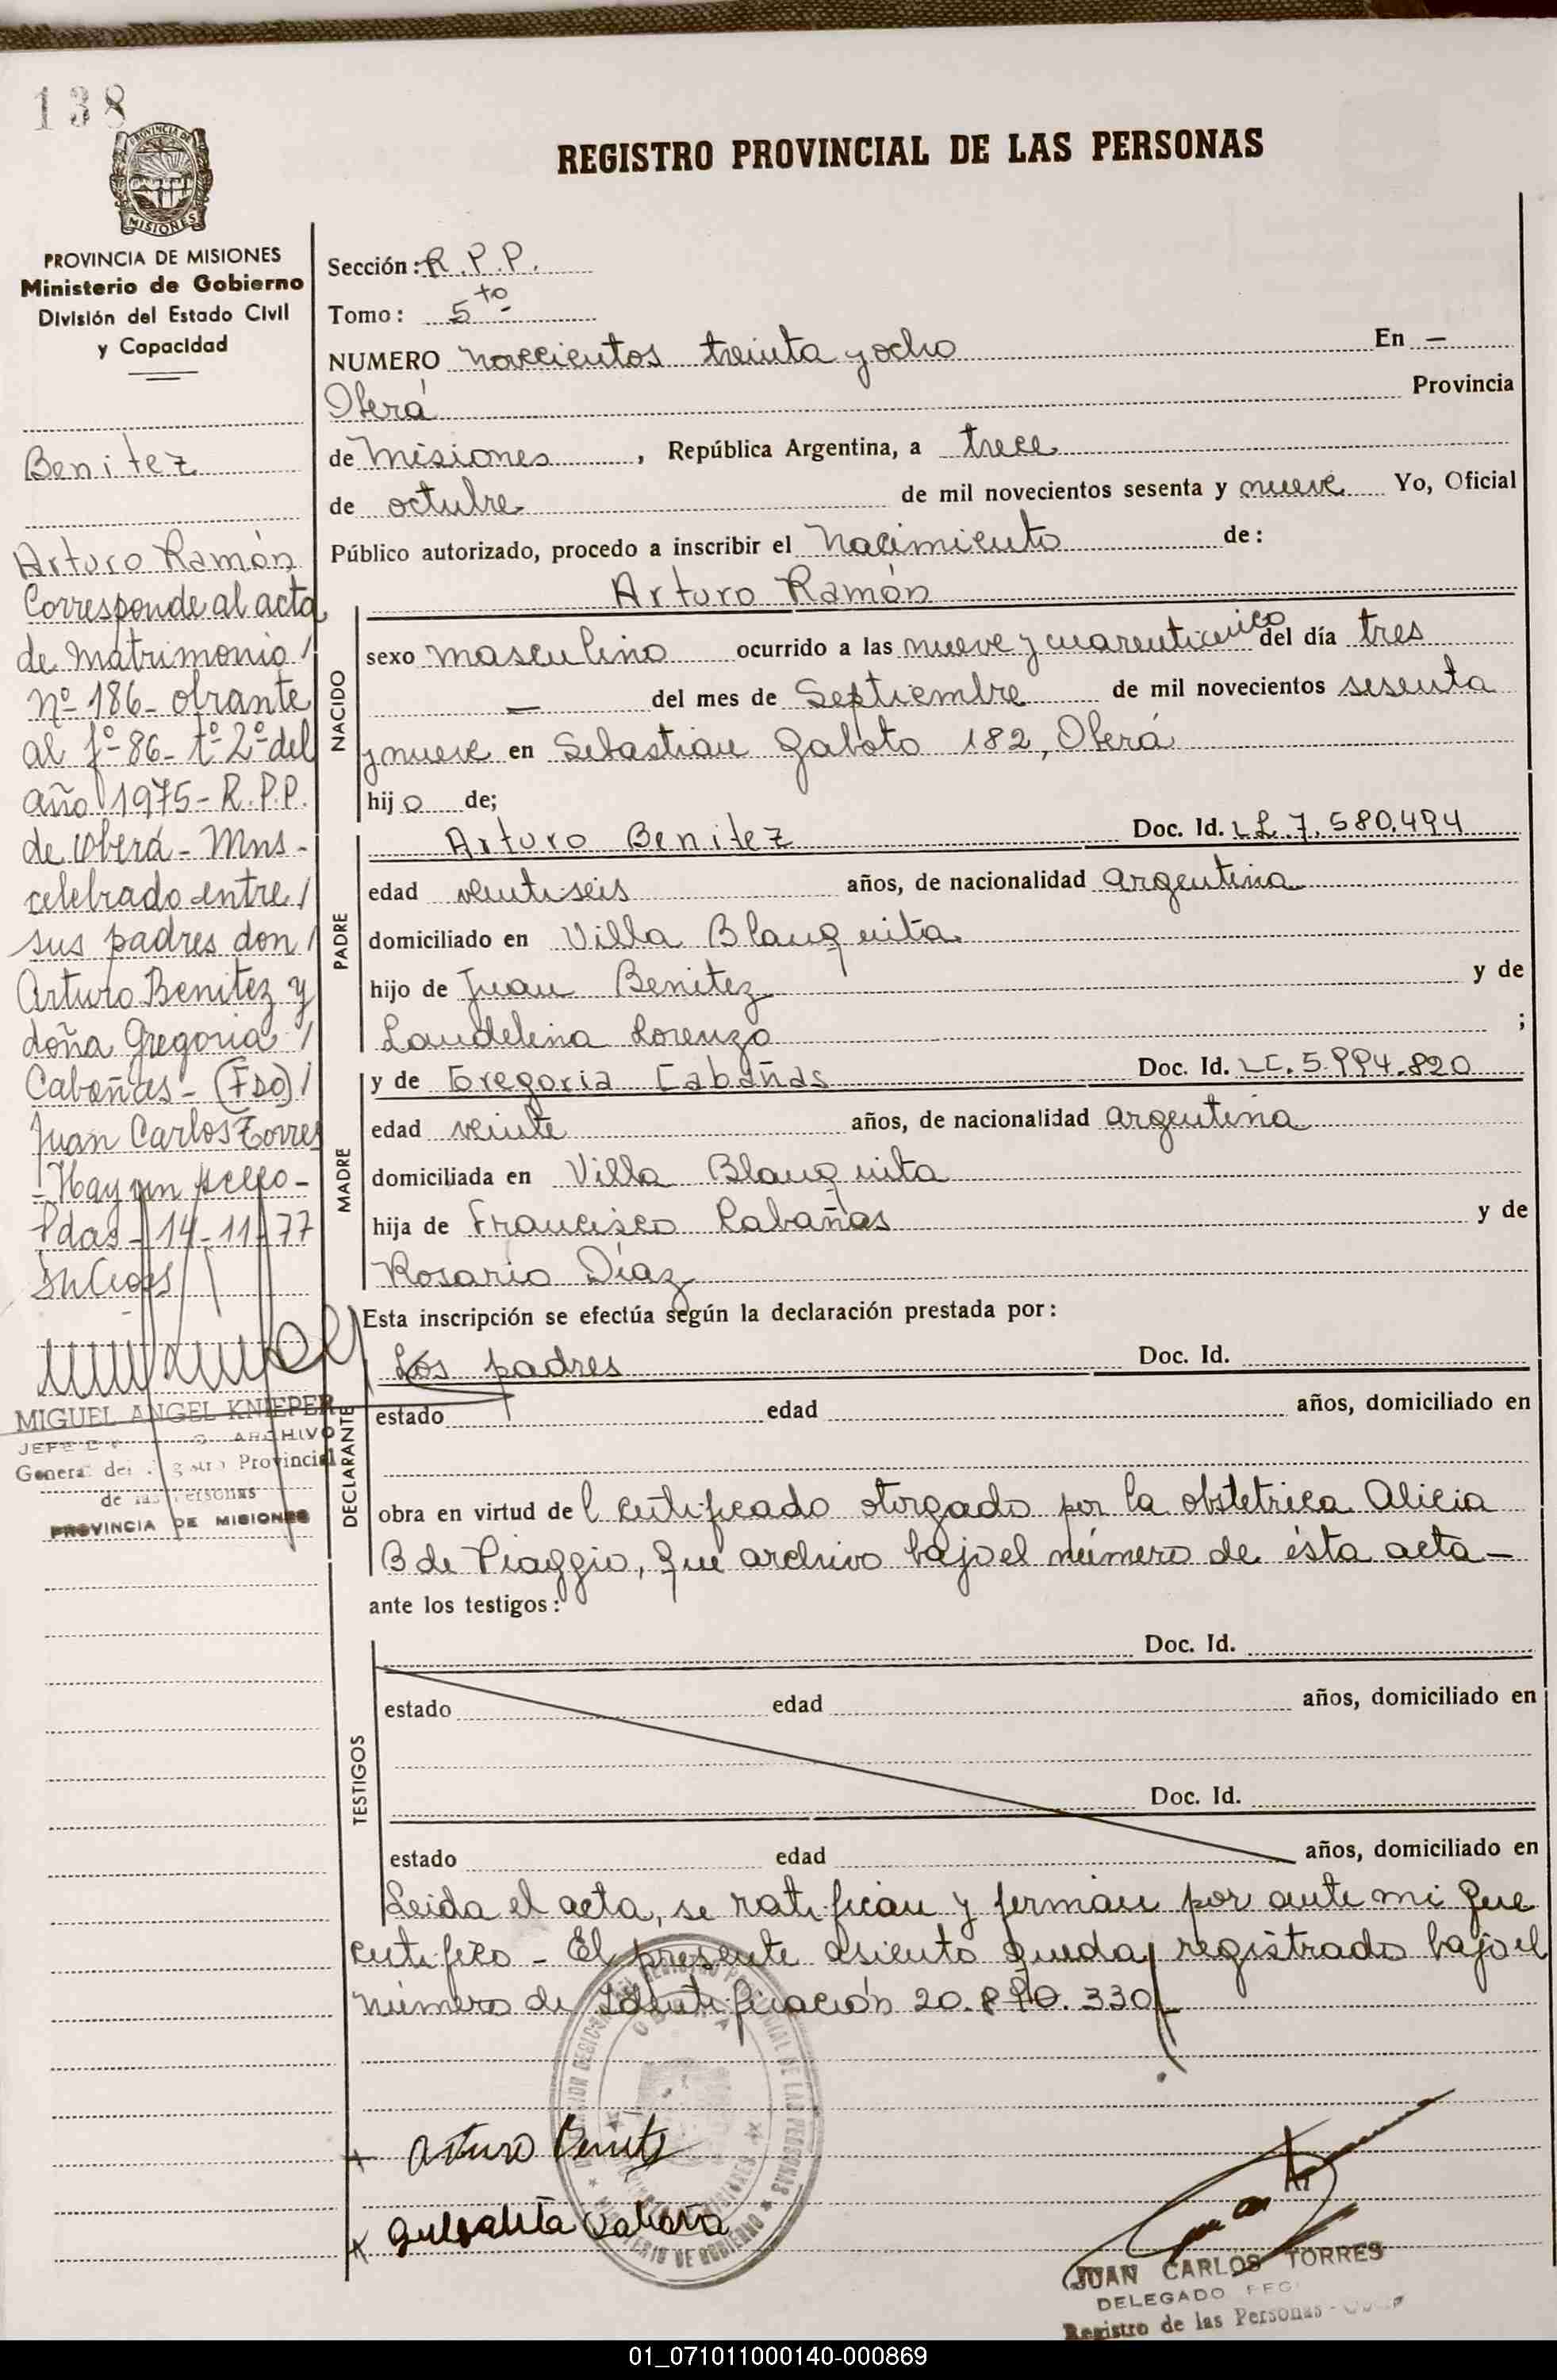 138
PROVINCIA DE
MISIONES
PROVINCIA DE MISIONES
Ministerio de Gobierno
División del Estado Civil
y Capacidad
Benitez
Arturo Ramón
Corresponde al acta
de matrimonio /
nº 186 - obrante
al fº 86 - tº 2º del
año 1975 - R.P.P.
de Oberá - Mns -
celebrado entre /
sus padres don /
Arturo Benitez y
doña Gregoria /
Cabañas - (FDO) /
Juan Carlos Torres
- Hay un sello -
Pdas - 14-11-77
MIGUEL ANGEL KNIEPER
ARCHIVO
General del Provincial
de las Personas
PROVINCIA DE MISIONES
REGISTRO PROVINCIAL DE LAS PERSONAS
Sección: R.P.P.
Tomo: 5to
NUMERO novecientos treinta y ocho En -
Oberá Provincia
de Misiones, República Argentina, a trece
de octubre de mil novecientos sesenta y nueve Yo, Oficial
Público autorizado, procedo a inscribir el nacimiento de:
Arturo Ramón
NACIDO
sexo masculino ocurrido a las nueve y cuarenticinco del día tres
- del mes de Septiembre de mil novecientos sesenta
y nueve en Sebastian Gaboto 182, Oberá
hijo de;
PADRE
Arturo Benitez Doc. Id. L.E. 7.580.494
edad veintiseis años, de nacionalidad argentina
domiciliado en Villa Blanquita
hijo de Juan Benitez y de
Laudelina Lorenzo ;
MADRE
y de Gregoria Cabañas Doc. Id. LC. 5.994.820
edad veinte años, de nacionalidad argentina
domiciliada en Villa Blanquita
hija de Francisco Cabañas y de
Rosario Díaz
Esta inscripción se efectúa según la declaración prestada por:
DECLARANTE
Los padres Doc. Id.
estado edad años, domiciliado en
obra en virtud del certificado otorgado por la obstetrica Alicia
B de Piaggio, que archivo bajo el número de ésta acta -
ante los testigos:
TESTIGOS
Doc. Id.
estado edad años, domiciliado en
Doc. Id.
estado edad años, domiciliado en
Leida el acta, se ratifican y firman por ante mi que
certifico - El presente asiento queda registrado bajo el
número de Identificación 20.890.330 -
Arturo Benitez
JUAN CARLOS TORRES
DELEGADO
Registro de las Personas -
01_071011000140-000869